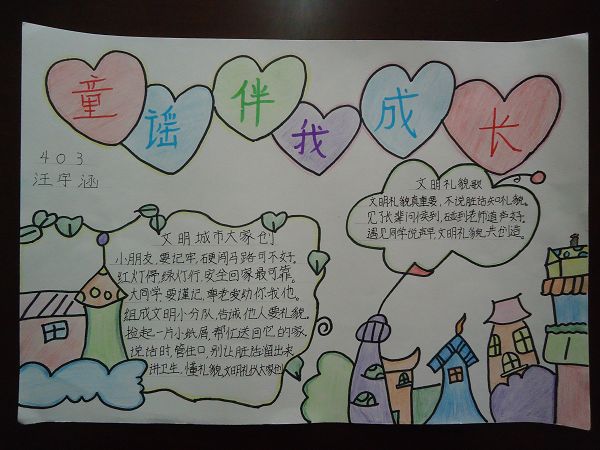 童谣伴我成长
403
汪宇涵
文明礼貌歌
文明礼貌真重要,不说脏话知礼貌。
见了长辈问候到,碰到老师道声好。
遇见同学说声早,文明礼貌共创造。
文明城市大家创
小朋友,要记牢,硬闯马路可不好。
红灯停,绿灯行,安全回家最可靠。
大同学,要谨记,尊老爱幼你我他。
组成文明小分队,告诫他人要礼貌。
捡起一片小纸屑,帮忙送回它的家。
说话时,管住口,别让脏话溜出来。
讲卫生,懂礼貌,文明礼从大家创